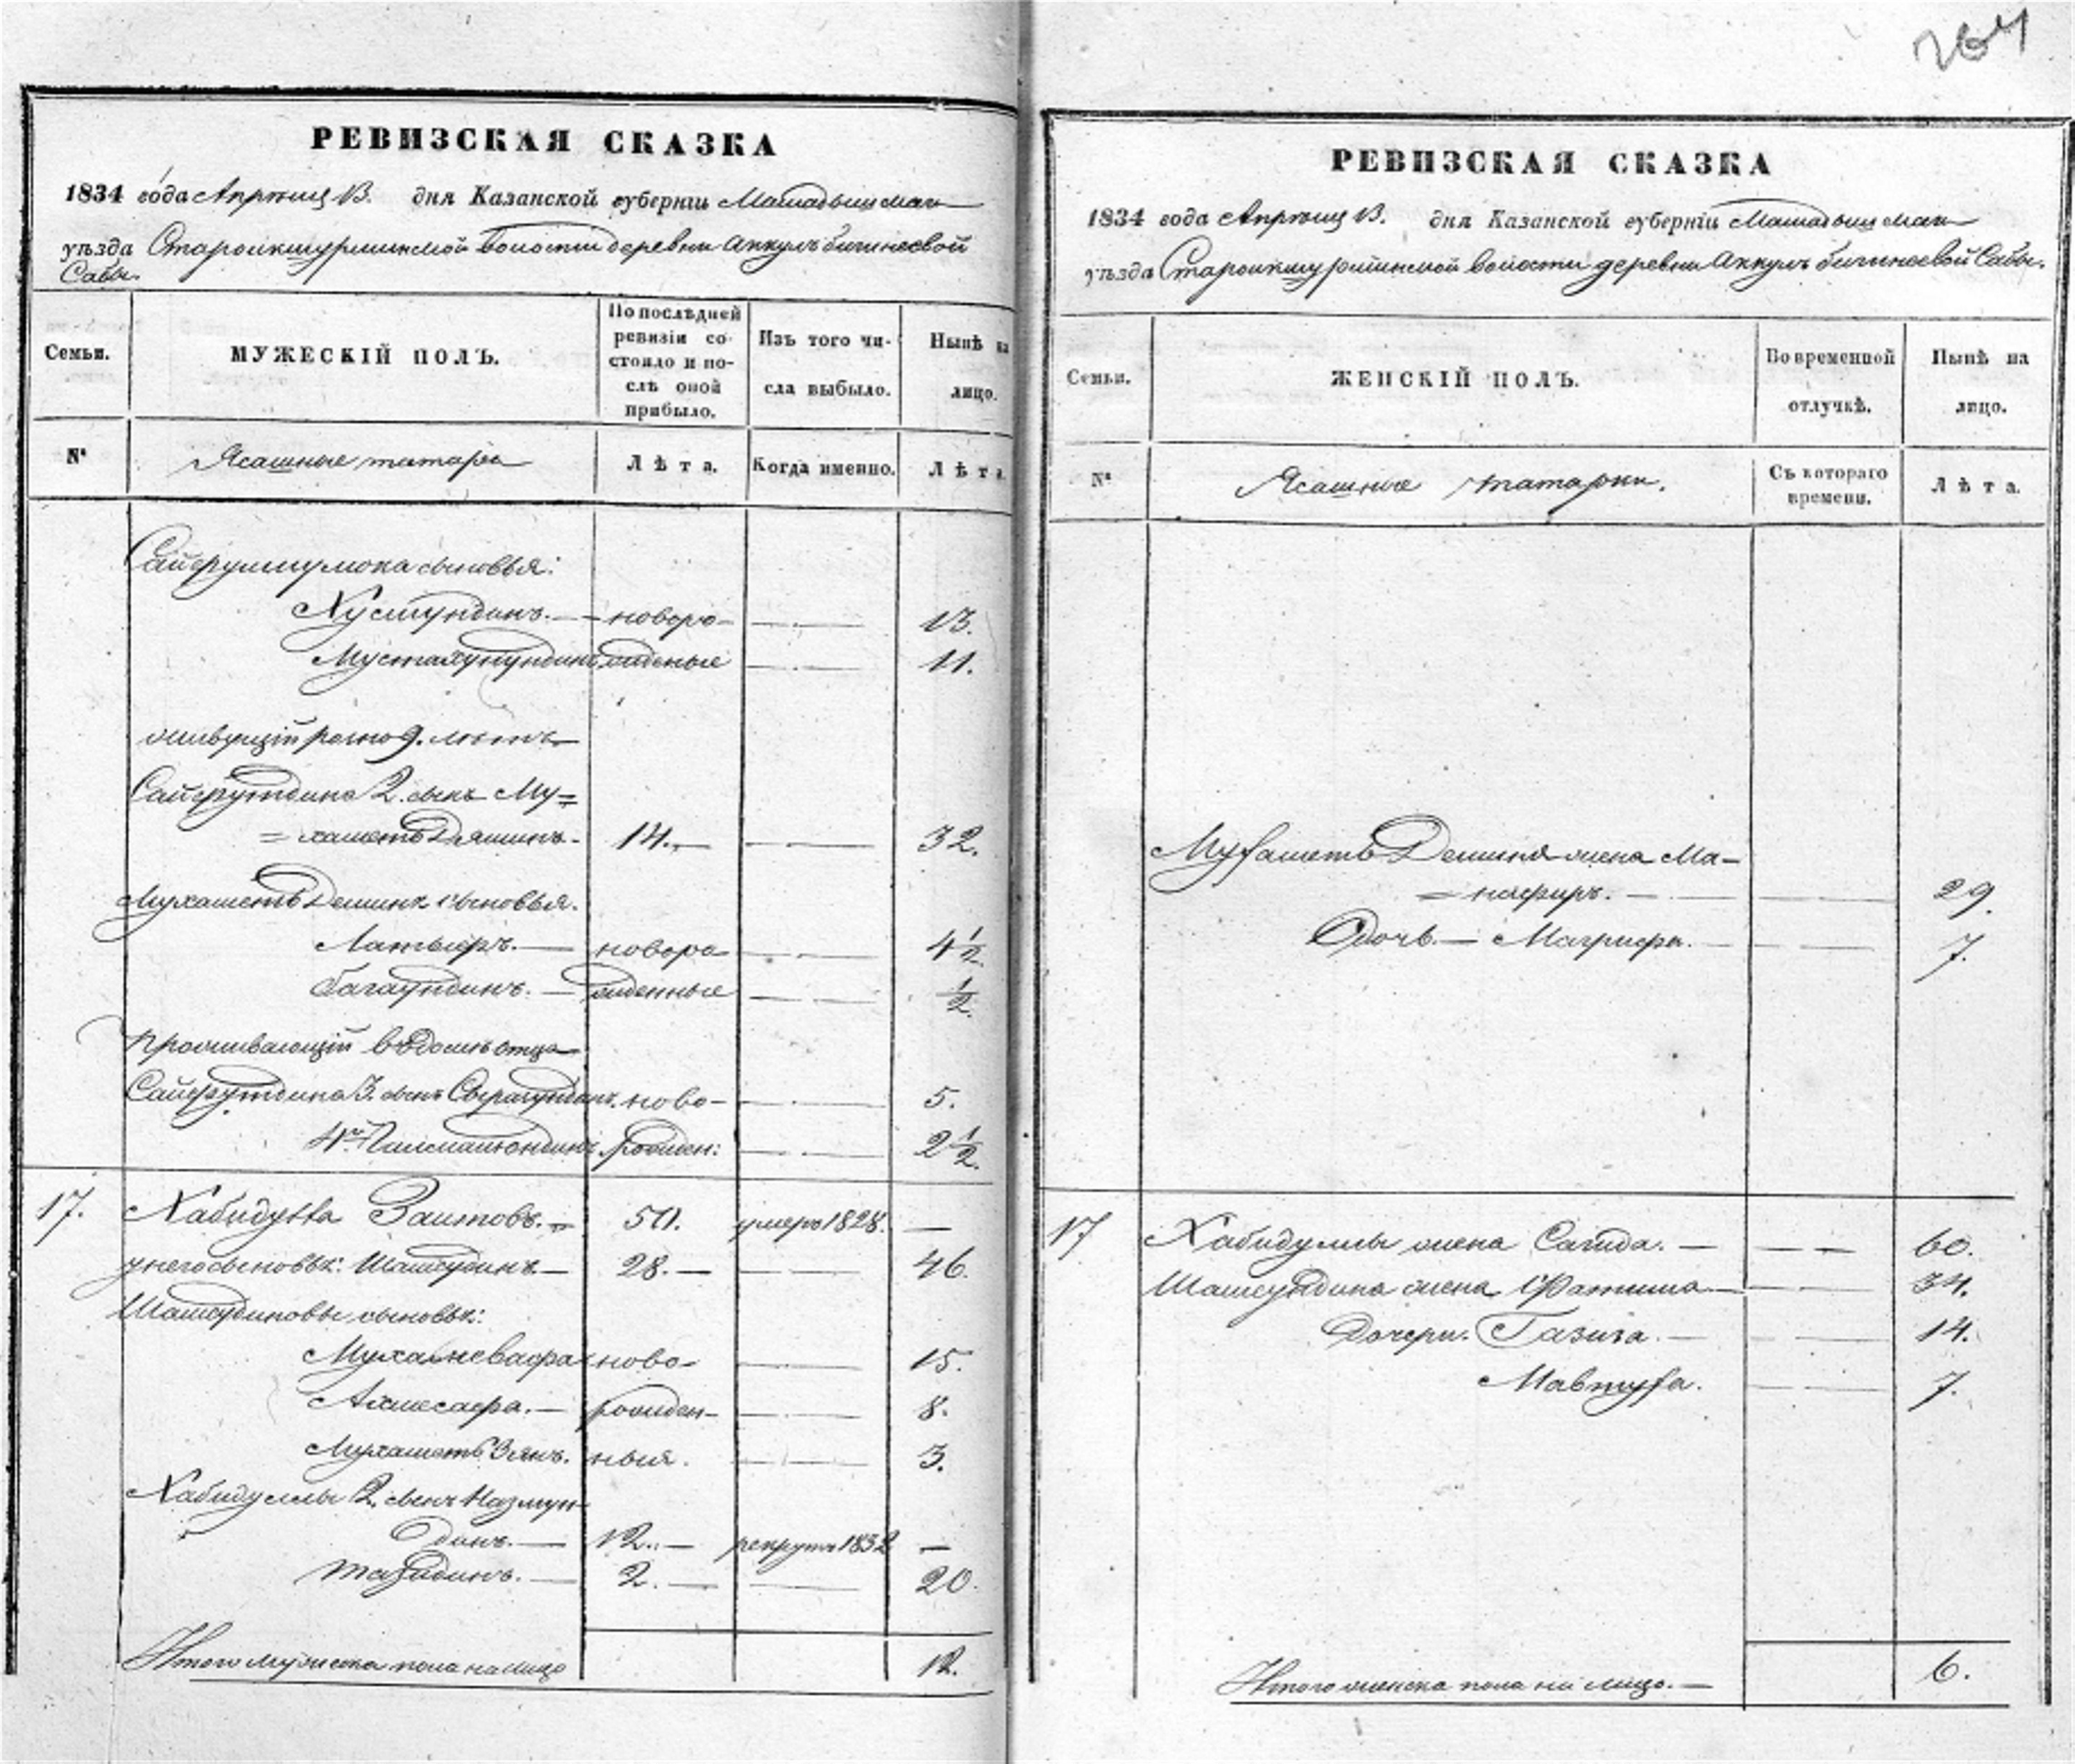 264
РЕВИЗСКАЯ СКАЗКА
1834 года Апрѣля 13. дня Казанской губерніи Мамадышскаго
уѣзда Староикшурминской волости деревни Аккулъ бигинеевой
Сабы.
Семьи.
МУЖЕСКІЙ ПОЛЪ.
По послѣдней
ревизіи со-
стояло и по-
слѣ оной
прибыло.
Изъ того чи-
сла выбыло.
Нынѣ на
лицо.
№
Ясашные татара
Лѣта.
Когда именно.
Лѣта
сыновья:
— новоро- — 13.
рожденные — 11.
2. сынъ Му=
=хаметь Деминъ. 14. — 32.
Мухаметь Демина сыновья.
— новоро — 4 1/2
Багаундинъ. — жденные — 1/2
проживающій въ домѣ отца
Сайфутдина 3. сынъ ново- — 5.
4й рожден: — 2 1/2.
17. Хабидулла Заитовъ. — 50. умеръ 1828. —
у него сыновья: Шамсудинъ. — 28. — 46.
Шамсудиновы сыновья:
ново- — 15.
Ахмесафа. — рожден- — 8.
Мухаметь Зянъ. ныя. — 3.
Хабидуллы 2. сынъ Назмун-
динъ. — 12. — рекрутъ 1832 —
Тазадинъ. — 2. — 20.
Итого мужеска пола на лицо 12.
РЕВИЗСКАЯ СКАЗКА
1834 года Апрѣля 13. дня Казанской губерніи Мамадышскаго
уѣзда Староикшурминской волости деревни Аккулъ бигинеевой Сабы.
Семьи.
ЖЕНСКІЙ ПОЛЪ.
Во временной
отлучкѣ.
Нынѣ на
лицо.
№
Ясашные татарки.
Съ котораго
времени.
Лѣта.
Мухаметь Демина жена Ма-
=нафиръ. — 29.
Дочь — Магрифа. — 7.
17 Хабидуллы жена Сагида. — 60.
Шамсундина жена Фатима — 34.
Дочери. Газиза. — 14.
Мавтуха. — 7.
Итого женска пола на лицо. — 6.